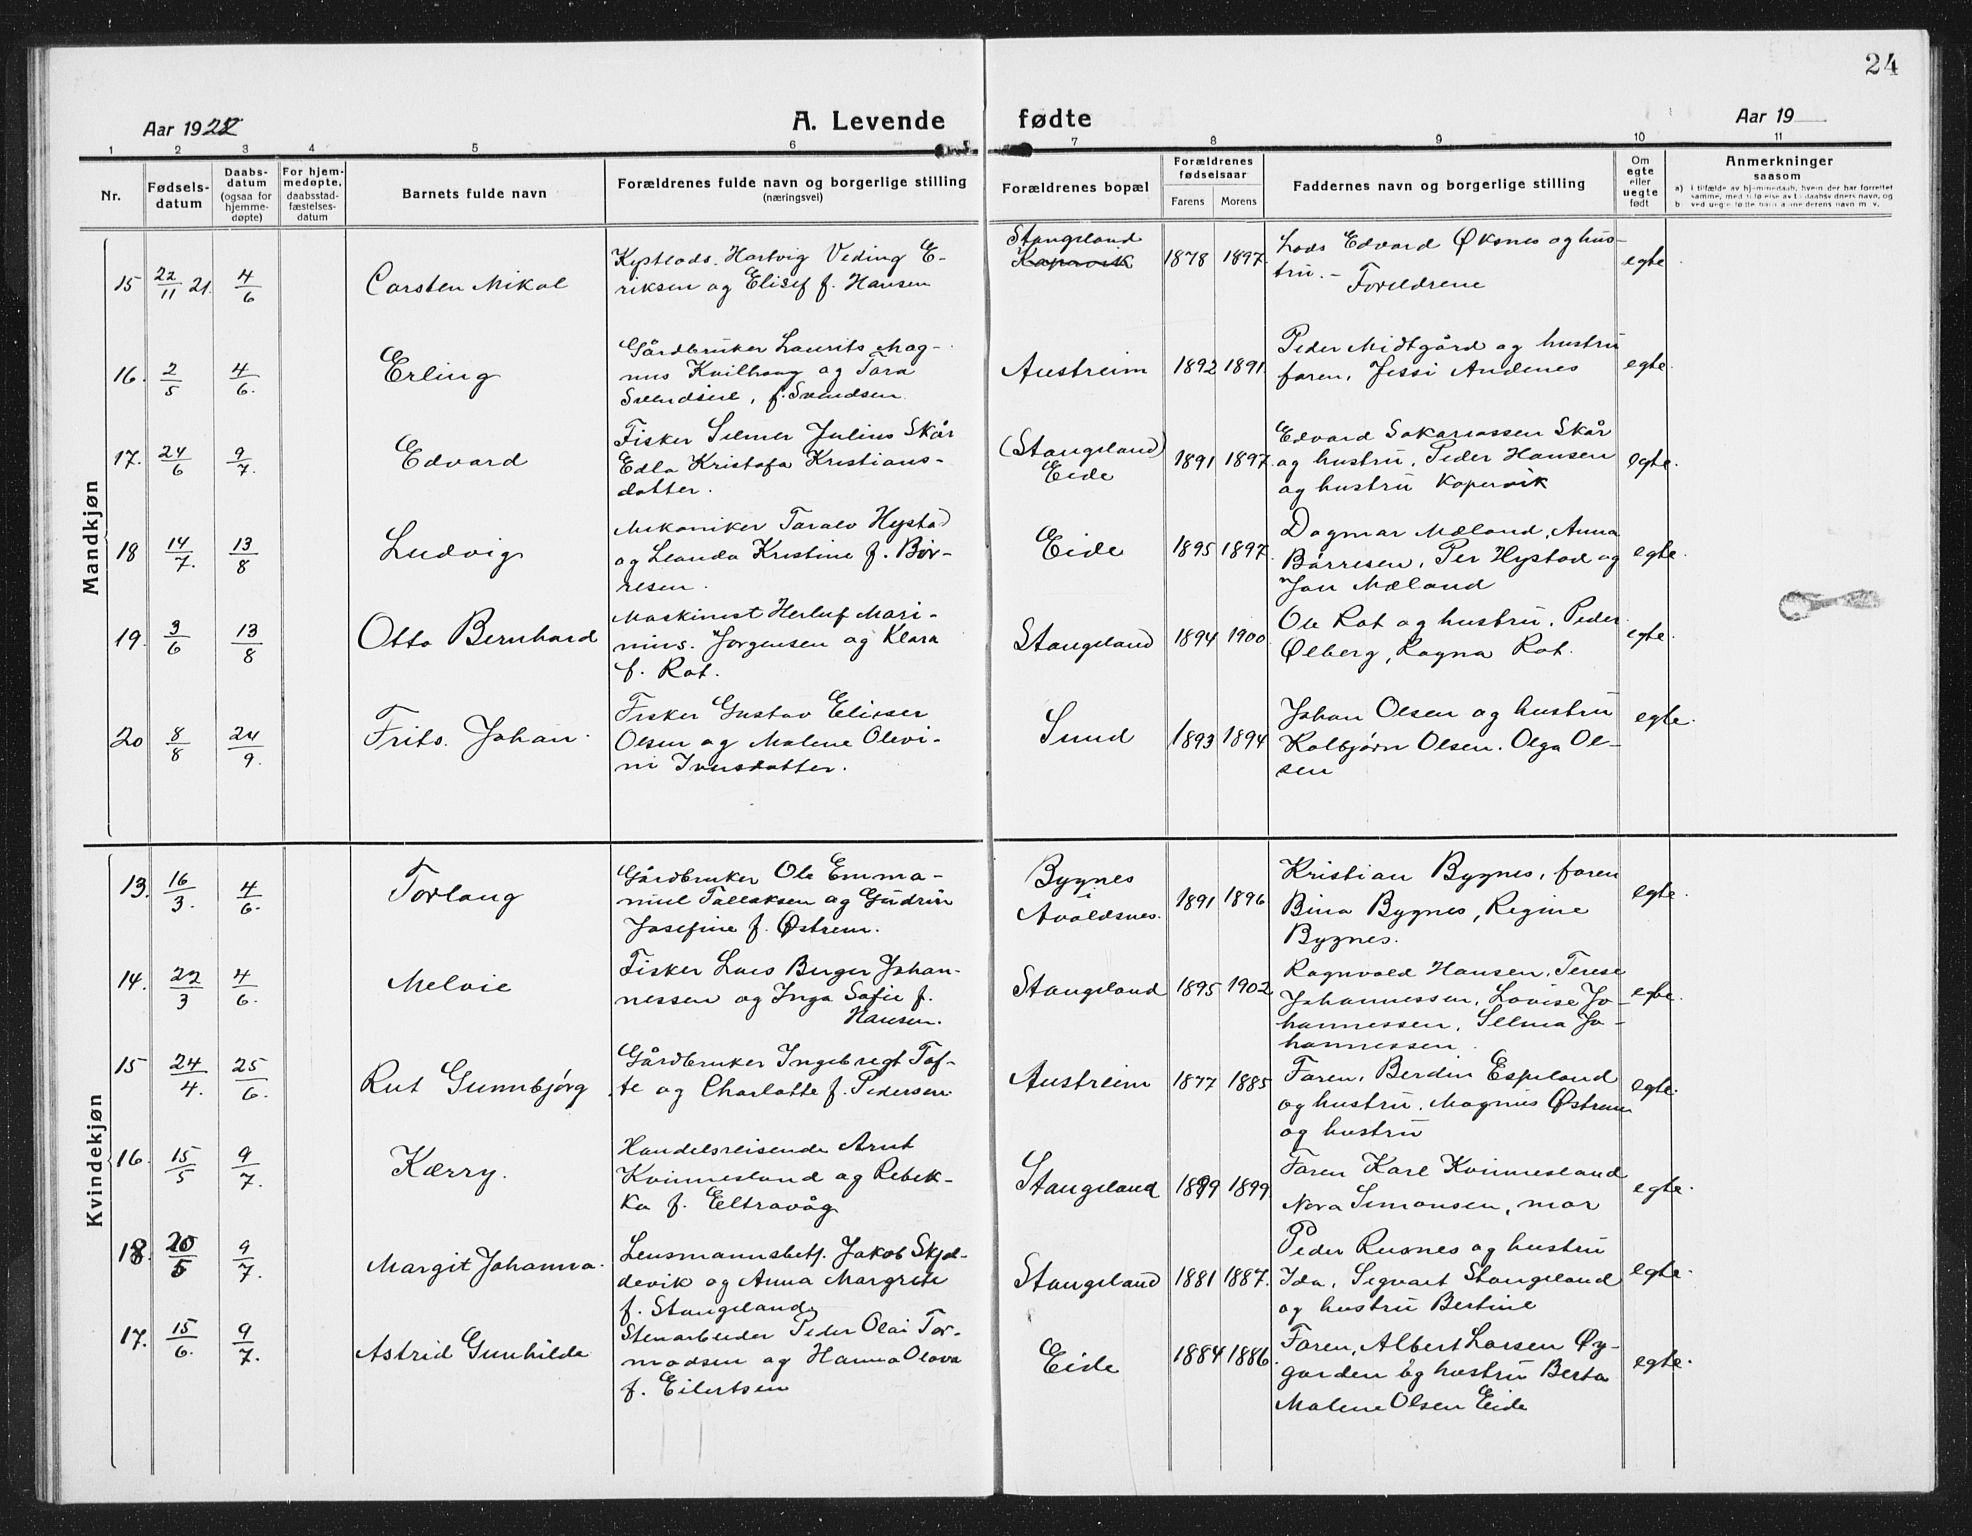 24
Aar 1922
A. Levende fødte
Aar 19
1 2 3 4 5 6 7 8 9 10 11
Nr.
Fødsels-
datum
Daabs-
datum
(ogsaa for
hjemme-
døpte)
For hjem-
medøpte,
daabsstad-
fæstelses-
datum
Barnets fulde navn
Forældrenes fulde navn og borgerlige stilling
(næringsvei)
Forældrenes bopæl
Forældrenes
fødselsaar
Farens Morens
Faddernes navn og borgerlige stilling
Om
egte
eller
uegte
født
Anmerkninger
saasom
Mandkjøn
15 22/11 21. 4/6 Carsten Mikal
Kystlods. Hartvig Veding E-
riksen og Elisef f. Hansen
Stangeland
Kopervik
1878 1897.
Lods Edvard Øksnes og hus-
tru. - Foreldrene
egte
16. 2/5 4/6. Erling
Gårdbruker Laurits Mag-
nus Kvilhaug og Tora
Svendsine, f. Svendsen.
Austreim 1892 1891.
Peder Midtgård og hustru
faren, Jessi Andenes
egte.
17. 24/6 9/7. Edvard
Fisker Selmer Julius Skår
Edla Kristofa Kristians-
datter.
(Stangeland)
Eide
1891 1897.
Edvard Sakariassen Skår
og hustru, Peder Hansen
og hustru Kopervik
egte.
18 14/7. 13/8 Ludvig
Mekaniker Taralv Hystad
og Leanda Kristine f. Bør-
resen.
Eide 1895 1897.
Dagmar Mæland, Anna
Børresen, Per Hystad og
Jon Mæland
egte.
19. 3/6 13/8 Otto Bernhard
Maskinist Herluf Mari-
nius. Jørgensen og Klara
f. Rot.
Stangeland 1894 1900.
Ole Rot og hustru, Peder
Ølberg, Ragna Rot.
egte.
20 8/8 24/9. Frits. Johan.
Fisker Gustav Elieser
Olsen og Malene Olevi-
ni Iversdatter.
Sund 1893 1894
Johan Olsen og hustru
Kolbjørn Olsen. Olga Ol-
sen
egte.
Kvindekjøn
13. 16/3. 4/6. Torlaug
Gårdbruker Ole Emma-
nuel Tallaksen og Gudrun
Josefine f. Østrem.
Bygnes
i
Avaldsnes.
1891 1896
Kristian Bygnes, faren
Bina Bygnes, Regine
Bygnes.
egte.
14. 22/3 4/6. Melvie
Fisker Lars Berger Johan-
nessen og Inga Sofie f.
Hansen.
Stangeland 1895 1902
Ragnvald Hansen, Terese
Johannessen, Lovise Jo-
hannessen, Selma Jo-
hannessen.
egte.
15 24/4. 25/6. Rut Gunnbjørg
Gårdbruker Ingebregt Tof-
te og Charlotte f. Pedersen.
Austreim 1877 1885
Faren, Berdin Espeland
og hustru. Magnus Østrem
og hustru
egte.
16. 15/5 9/7. Kærry.
Handelsreisende Arnt
Kvinnesland og Rebek-
ka f. Eltravåg
Stangeland 1899 1899.
Faren Karl Kvinnesland
Nora Simonsen, mor
egte.
18. 20/5 9/7. Margit Johanna.
Lensmannsbetj. Jakob Skjol-
devik og Anna Margrete
f. Stangeland
Stangeland 1881 1887.
Peder Rusnes og hustru
Ida, Segvart Stangeland
og hustru Bertine
egte.
17. 15/6. 9/7. Astrid Gunhilde
Stenarbeider Peder Olai Tor-
modsen og Hanna Olava
f. Eilertsen
Eide 1884 1886.
Faren, Albert Larsen Øy-
garden og hustru Berta
Malene Olsen Eide
egte.